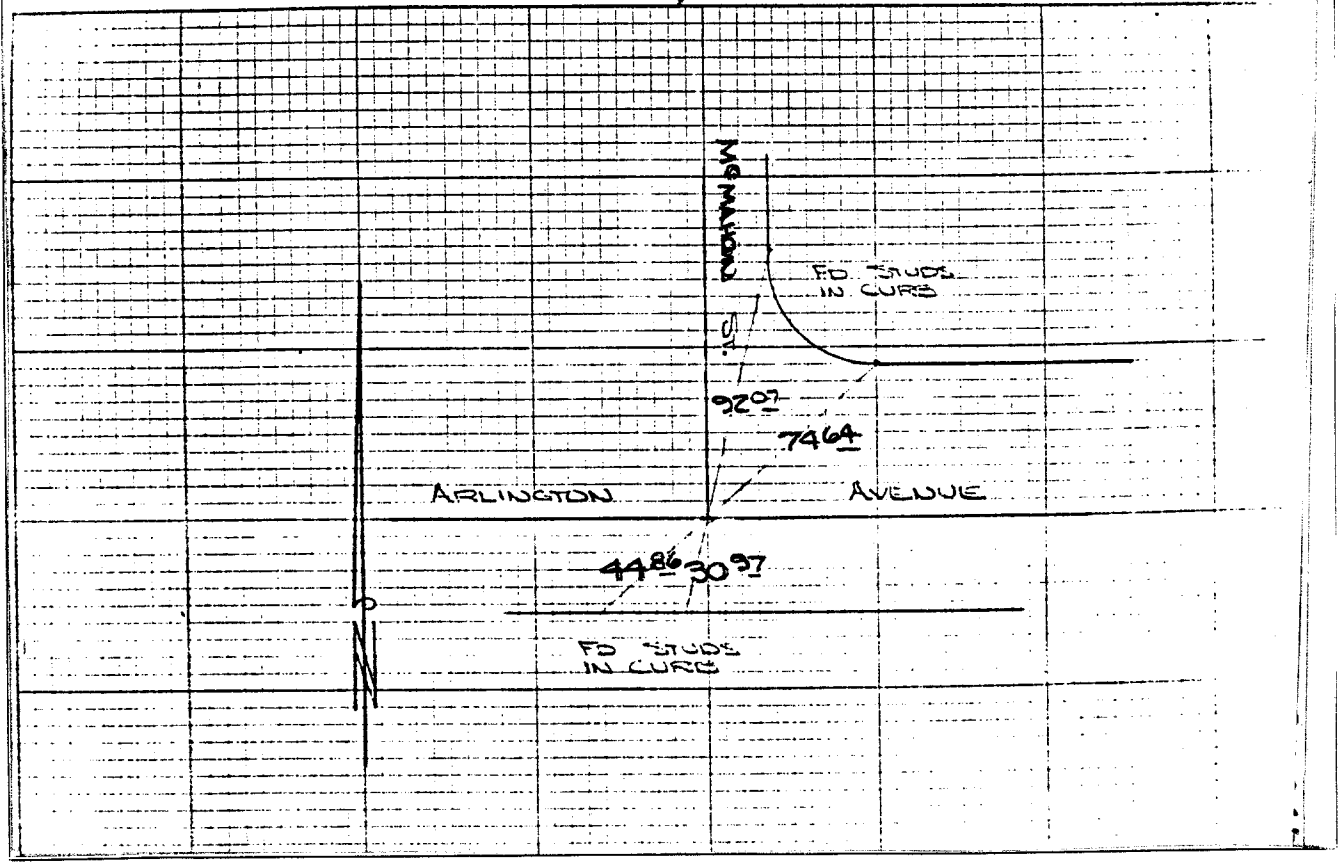 McMAHON ST.
FD STUDS
IN CURB
92.07
74.64
ARLINGTON AVENUE
44.86 30.97
FD STUDS
IN CURB
N